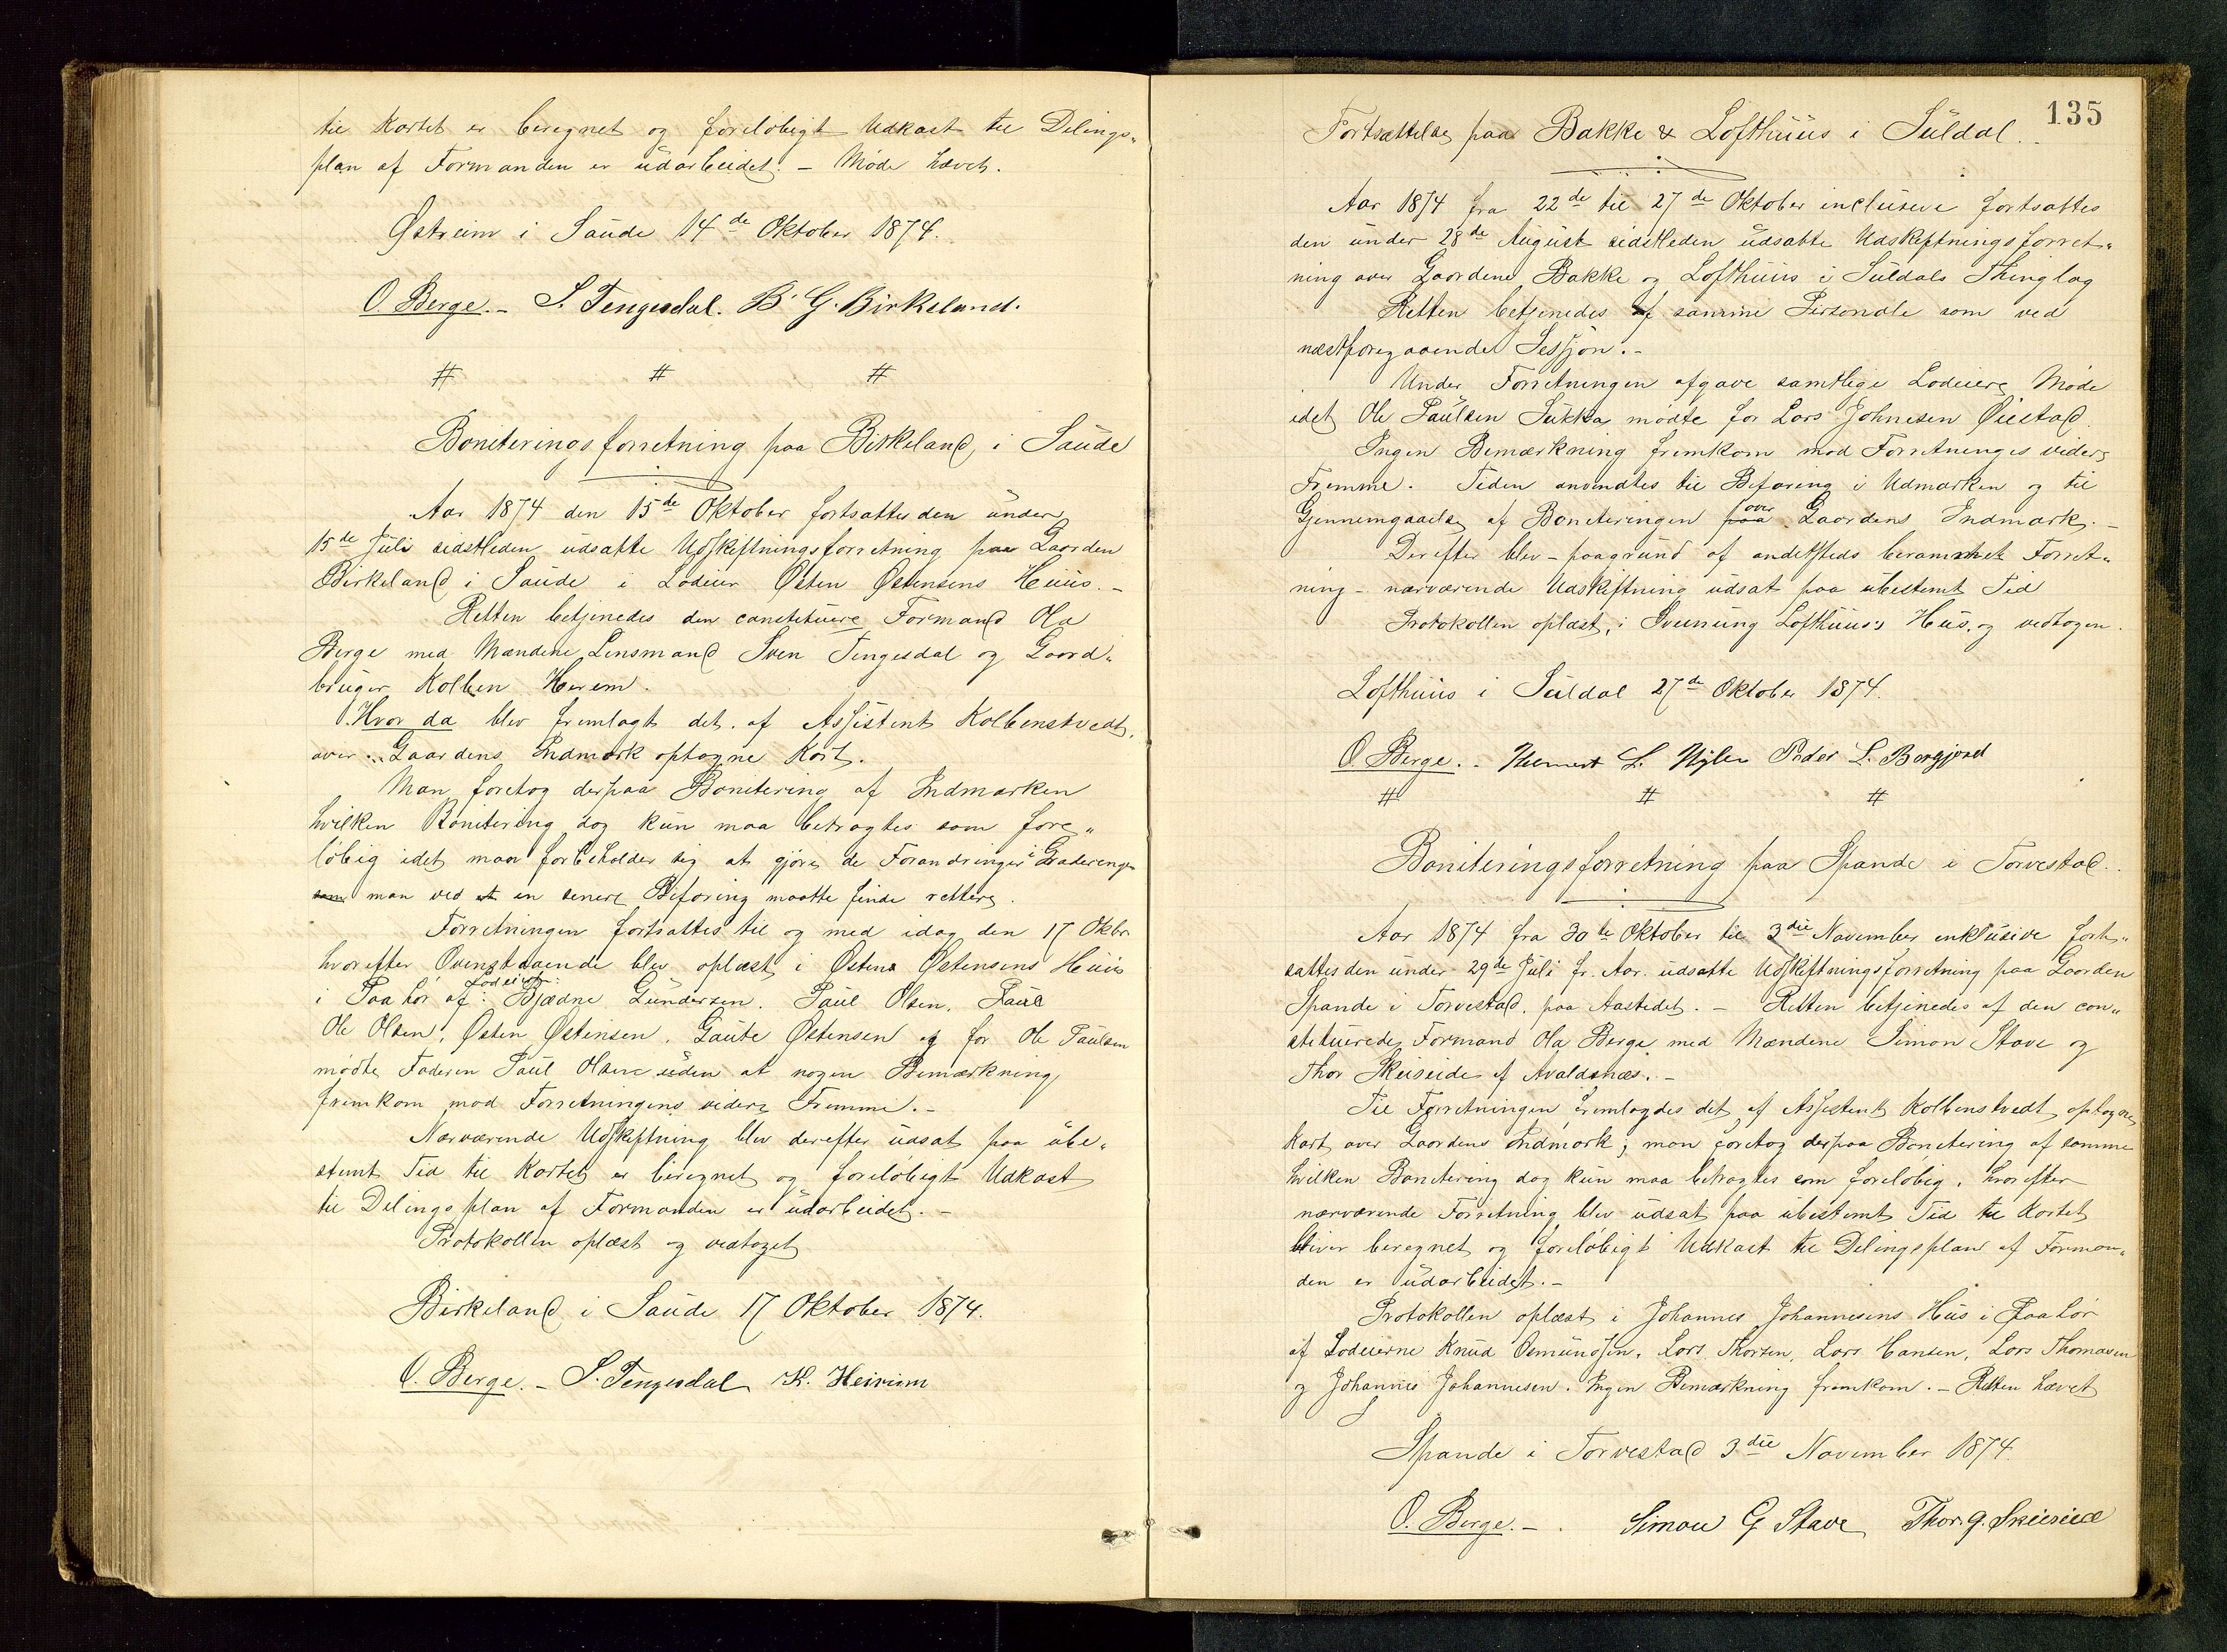 til Kartet er beregnet og foreløbigt Udkast til Delings„
plan af Formanden er udarbeidet. – Møde hævet.
Østreim i Saude 14de Oktober 1874.
O. Berge. – S. Tengesdal. B. G. Birkeland.
# # #
Boniteringsforretning paa Birkeland i Saude
Aar 1874 den 15de Oktober fortsattes den under
15de Juli sidstleden udsatte Udskiftningsforretning paa Gaarden
Birkeland i Saude i Lodeier Østen Østensens Huus. –
Retten betjenedes den constituere Formand Ola
Berge med Mændene Lensmand Sven Tengesdal og Gaard„
bruger Kolben Herem.
Hvor da blev fremlagt det af Assistent Kolbenstvedt
over Gaardens Indmark optagne Kart.
Man foretog derpaa Bonitering af Indmarken
hvilken Bonitering dog kun maa betragtes som fore„
løbig idet man forbeholder sig at gjøre de Forandringer i Graderingen
som man ved et en senere Befaring maatte finde rettere.
Forretningen fortsattes til og med idag den 17 Oktbr
hvorefter Ovenstaaende blev oplæst i Østen Østensens Huus
i Paahør af Lodeierne: Bjædne Gundersen. Paul Olsen. Paul
Ole Olsen, Østen Østensen, Gaute Østensen og for Ole Paulsen
mødte Faderen Paul Olsen uden at nogen Bemærkning
fremkom mod Forretningens videre Fremme. –
Nærværende Udskiftning blev derefter udsat paa ube„
stemt Tid til Kartet er beregnet og foreløbigt Udkast
til Delingsplan af Formanden er udarbeidet. –
Protokollen oplæst og vedtaget
Birkeland i Saude 17 Oktober 1874.
O. Berge. – S. Tengesdal K. Heirim
135
Fortsættelse paa Bakke & Lofthuus i Suldal.
Aar 1874 fra 22de til 27de Oktober inclusive fortsattes
den under 28de August sidstleden udsatte Udskiftningsforret„
ning over Gaardene Bakke og Lofthuus i Suldals Thinglag
Retten betjenedes af samme Personale som ved
næstforegaaende Session. –
Under Forretningen afgave samtlige Lodeiere Møde
idet Ole Paulsen Sukka mødte for Lars Johnesen Øiestad.
Ingen Bemærkning fremkom mod Forretninges videre
Fremme. Tiden anvendtes til Befaring i Udmarken og til
Gjennemgaaelse af Boniteringen paa over Gaardens Indmark. –
Derefter blev – paagrund af andetsteds berammet Forret„
ning – nærværende Udskiftning udsat paa ubestemt Tid
Protokollen oplæst, i Sveinung Lofthuus's Hus, og vedtagen.
Lofthuus i Suldal 27de Oktober 1874.
O. Berge. – L. Peder L. Bergjord
# # #
Boniteringsforretning paa Spande i Torvestad.
Aar 1874 fra 30te Oktober til 3die November inklusive fort„
sattes den under 29de Juli d. Aar. udsatte Udskiftningsforretning paa Gaarden
Spande i Torvestad, paa Aastedet. – Retten betjenedes af den con„
stituerede Formand Ola Berge med Mændene Simon Stave og
Thor Skeiseide af Avaldsnæs. –
Til Forretningen fremlagdes det af Assistent Kolbenstvedt optagne
Kart over Gaardens Indmark; man foretog derpaa Bonitering af samme
hvilken Bonitering dog kun maa betragtes som foreløbig, hvorefter
nærværende Forretning blev udsat paa ubestemt Tid til Kartet
bliver beregnet og foreløbigt Udkast til Delingsplan af Forman„
den er udarbeidet. –
Protokollen oplæst i Johannes Johannesens Hus i Paahør
af Lodeierne Knud Osmundsen, Lars Thorsen, Lars Hansen, Lars Thomasen
og Johannes Johannesen. Ingen Bemærkning fremkom. – Retten hævet
Spande i Torvestad 3die November 1874.
O. Berge. – Simon G Stave Thor. G. Skeiseide